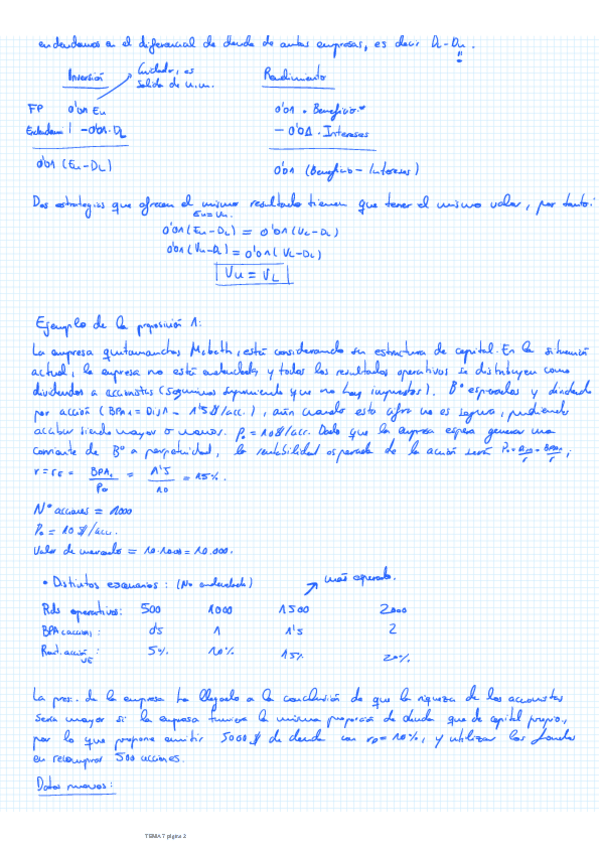 endeudamos en el diferencial de deuda de ambas empresas, es decir DL-Du.
Inversión
Cuidado, es salida de u.m.
Rendimiento
FP 0'01 Eu
0'01 · Beneficio
-0'01·DL
- 0'01 · Intereses
0'01 (Eu-DL)
0'01 (Beneficio - Intereses)
Dos estrategias que ofrecen el mismo resultado tienen que tener el mismo valor, por tanto:
Eu=Vu
0'01(Eu-DL) = 0'01(VL-DL)
0'01(Vu-DL) = 0'01(VL-DL)
Vu = VL
Ejemplo de la proposición 1:
La empresa quitamanchas Mcbeth, está considerando su estructura de capital. En la situación
actual, la empresa no está endeudada y todos los resultados operativos se distribuyen como
dividendos a accionistas (seguimos suponiendo que no hay impuestos). Bº esperados y dividendo
por acción (BPA1 = Div1 = 1'5$/acc.), aún cuando esta cifra no es segura, pudiendo
acabar siendo mayor o menor. P0 = 10$/acc. Dado que la empresa espera generar una
corriente de Bº a perpetuidad, la rentabilidad esperada de la acción será
r = rE = BPA1/P0 = 1'5/10 = 15%.
Nº acciones = 1000
P0 = 10 $/acc.
Valor de mercado = 10·1000 = 10.000.
• Distintos escenarios: (No endeudada)
más esperado.
Rdo operativos: 500 1000 1500 2000
BPA acciones: 0'5 1 1'5 2
Rent. acción: 5% 10% 15% 20%
La pres. de la empresa ha llegado a la conclusión de que la riqueza de los accionistas
sería mayor si la empresa tuviera la misma proporción de deuda que de capital propio,
por lo que propone emitir 5000$ de deuda con rD = 10%, y utilizar los fondos
en recomprar 500 acciones.
Datos nuevos:
TEMA 7 página 2